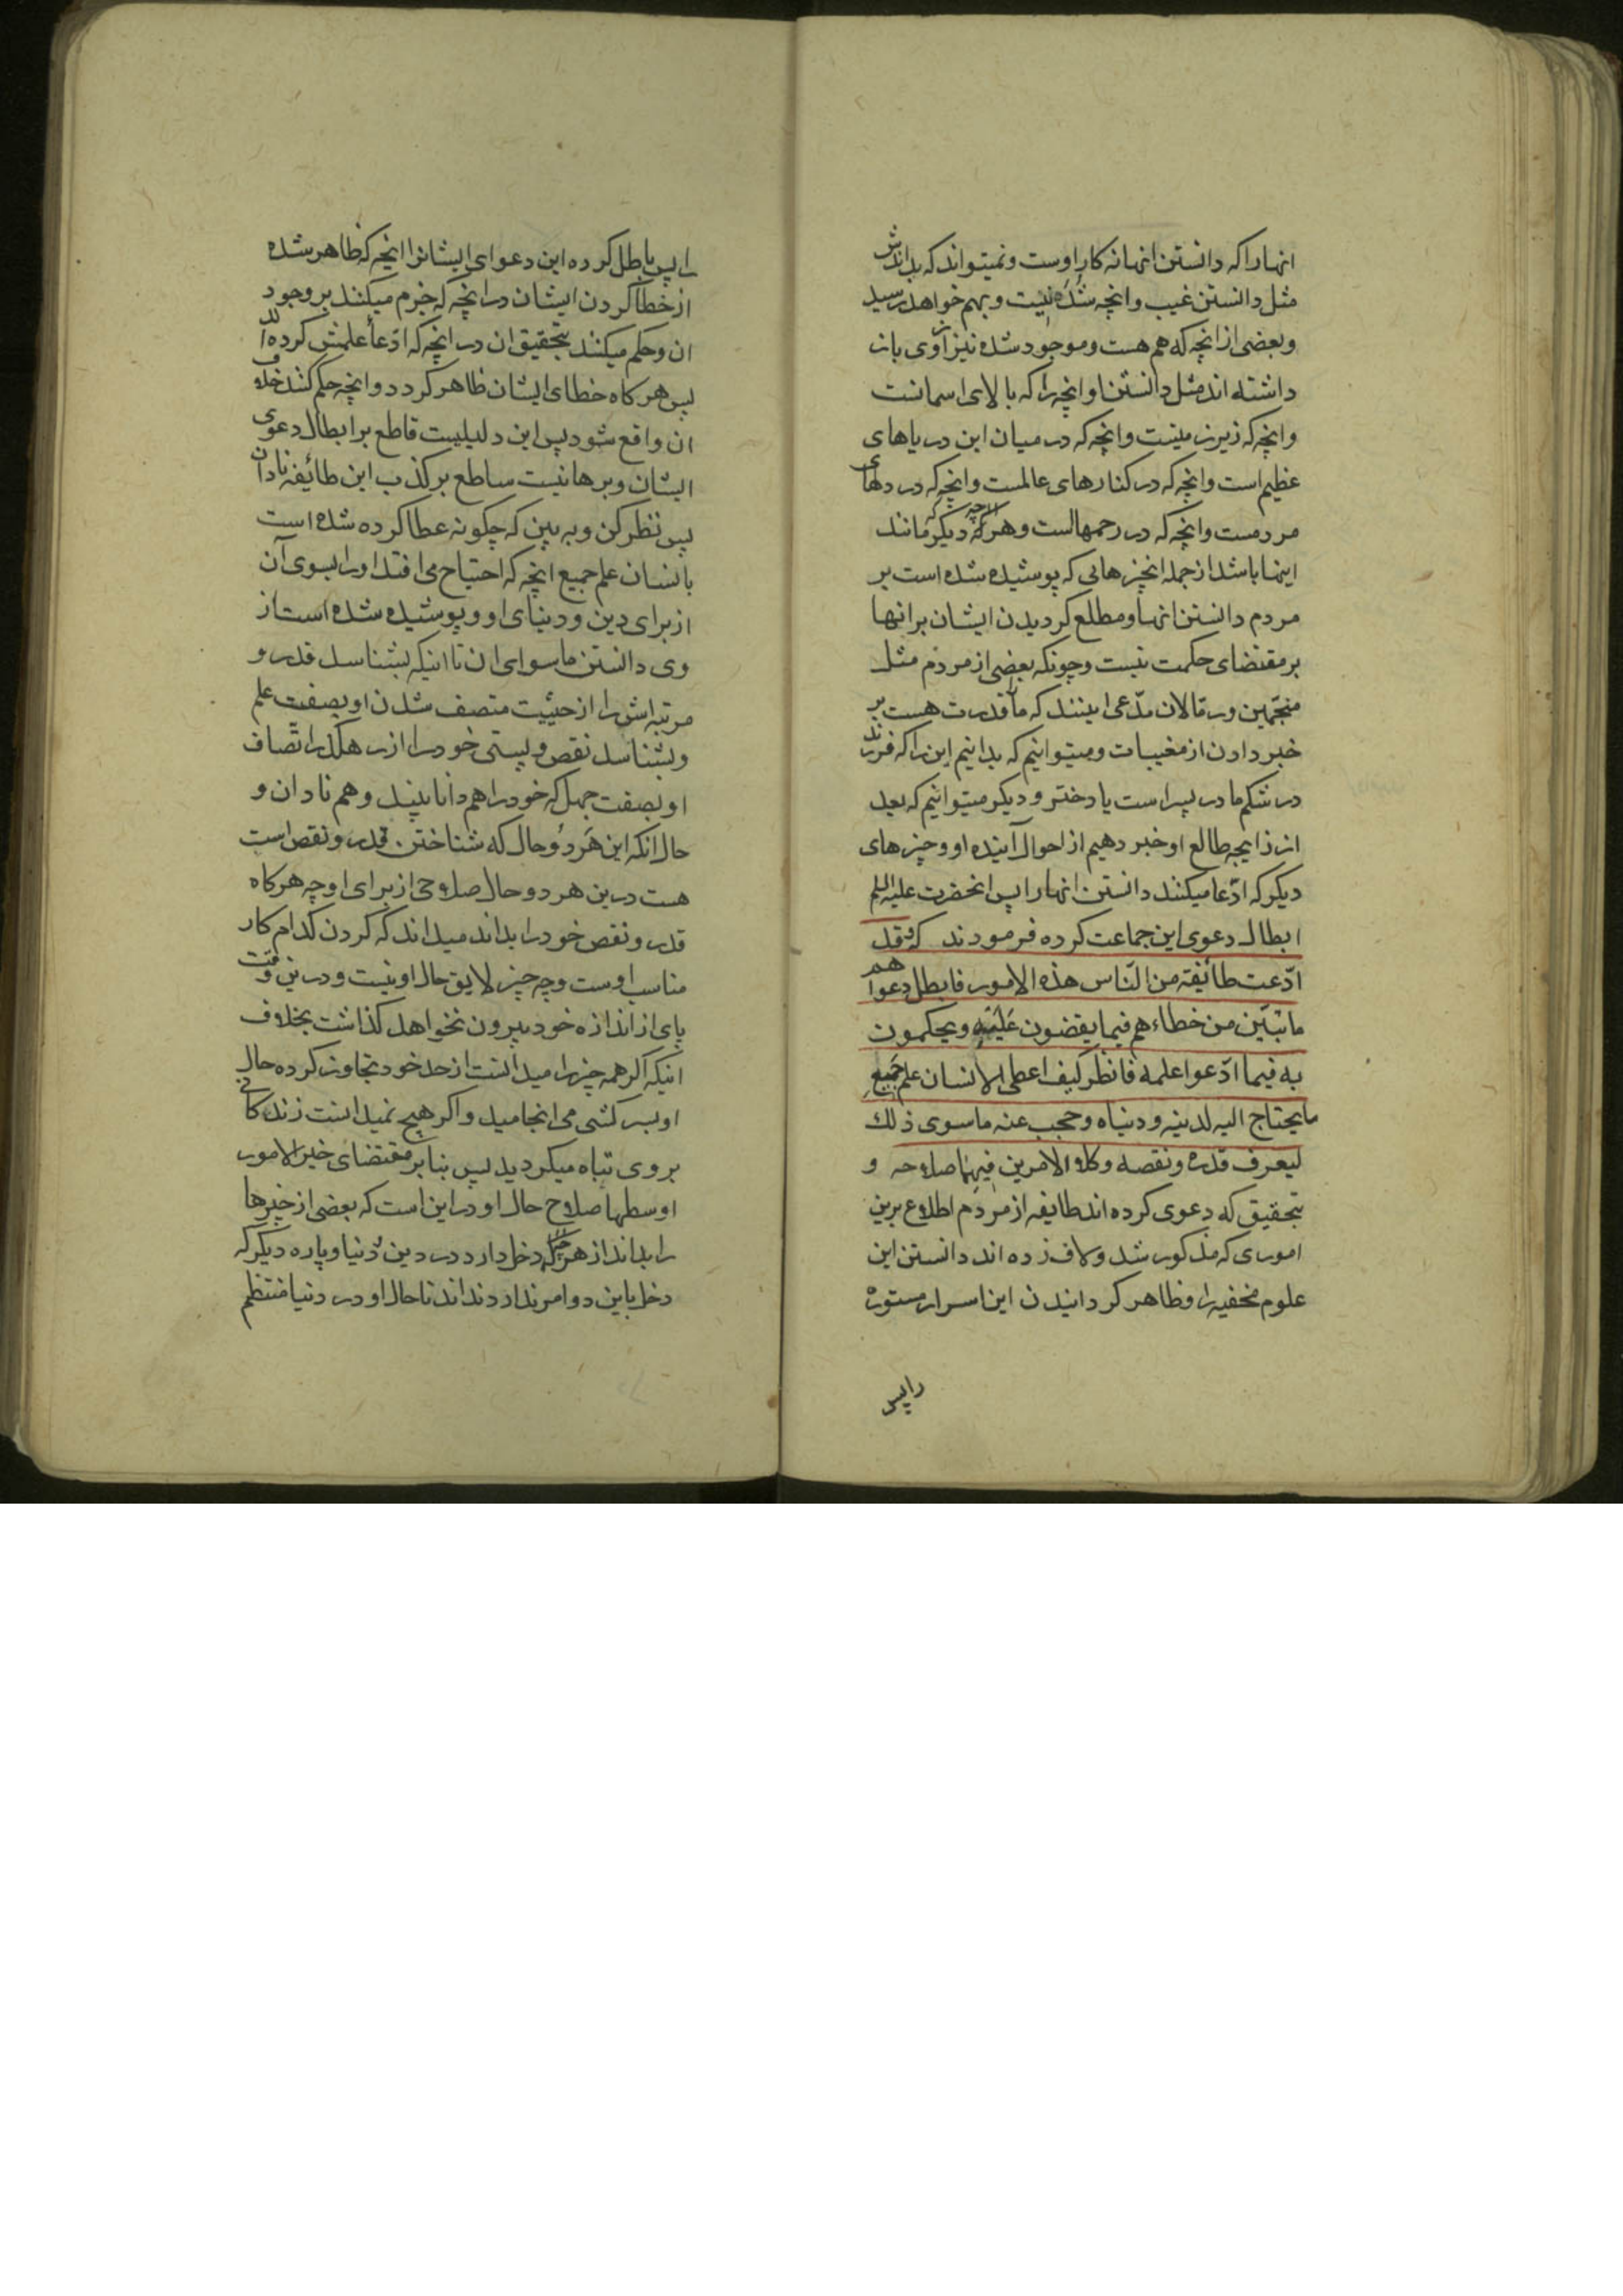 انهارا که دانستن انها نه کار اوست و نمیتواند که بداندش
مثل دانستن غیب وانچه شده نیست و بهم خواهد رسید
وبعضی از انچه که هم هست و موجود شده نیز از وی باز
داشته اند مثل دانستن او انچه را که بالای اسمانست
وانچه که زیر زمینست وانچه که در میان این دریاهای
عظیم است وانچه که در کنارهای عالمست وانچه که در دلهای
مردمست وانچه که در رحمهاست وهر انچه که دیگر مانند
اینها باشد از جمله انچیزهایی که پوشیده شده است بر
مردم دانستن انها ومطلع کردیدن ایشان بر انها
بر مقتضای حکمت نیست وچونکه بعضی از مردم مثل
منجّمین ورمّالان مدّعی اینند که ما را قدرت هست بر
خبر دادن از مغیبات ومیتوانیم که بدانیم این را که فرزند
در شکم مادر پسر است یا دختر و دیکر میتوانیم که بعد
از زایجه طالع او خبر دهیم از احوال آینده او وچیزهای
دیکر که ادّعا میکنند دانستن انها را پس انحضرت علیه السلم
ابطال دعوی این جماعت کرده فرمودند که وقد
ادّعت طائفة من النّاس هذه الامور فابطل دعواهم
ما تبیّن من خطاءهم فیما یقضون علیه ویحکمون
به فیما ادّعوا علمه فانظر کیف اعطی الانسان علم جمیع
مایحتاج الیه لدینه ودنیاه وحجب عنه ماسوی ذلك
لیعرف قدره ونقصه وکلا الامرین فیهما صلاحه و
بتحقیق که دعوی کرده اند طایفه از مردم اطلاع برین
اموری که مذکور شد ولاف زده اند دانستن این
علوم مخفیه را وظاهر کردانیدن این اسرار مستوره
را پس
را پس باطل کرده این دعوای ایشانرا انچه که ظاهر شده
از خطا کردن ایشان در انچه که جزم میکنند بر وجود
ان وحکم میکنند بتحقیق ان در انچه که ادّعأ علمش کرده اند
پس هر کاه خطای ایشان ظاهر کردد وانچه حکم کنند خلاف
ان واقع شود پس این دلیلیست قاطع بر ابطال دعوی
ایشان وبرهانیست ساطع بر کذب این طائفه نادان
پس نظر کن وبه بین که چکونه عطا کرده شده است
بانسان علم جمیع انچه که احتیاح می افتد او را بسوی آن
از برای دین ودنیای او وپوشیده شده است از
وی دانستن ماسوای ان تا اینکه بشناسد قدر و
مرتبه اش را از حیثیت متصف شدن او بصفت علم
وبشناسد نقص وپستی خود را از رهکذر اتّصاف
او بصفت جهل که خود را هم دانا بیند وهم نادان و
حال انکه این هَر دُو حال که شناختن قدر ونقص است
هست درین هر دو حال صلاحی از برای او چه هرکاه
قدر ونقص خود را بداند میداند که کردن کدام کار
مناسب اوست وچه چیز لایق حال او نیست و درین وقت
پای از اندازه خود بیرون نخواهد کذاشت بخلاف
اینکه اکر همه چیز را میدانست از حد خود تجاوز کرده حال
او بسرکشی می انجامید و اکر هیچ نمیدانست زندکانی
بر وی تباه میکردید پس بنا بر مقتضای خیر الامور
اوسطها صلاح حال او در این است که بعضی از چیزها
را بداند از هر چه که دخل دارد در دین ودنیا وپاره دیکر که
دخل باین دو امر ندارد نداند تا حال او در دنیا منتظم